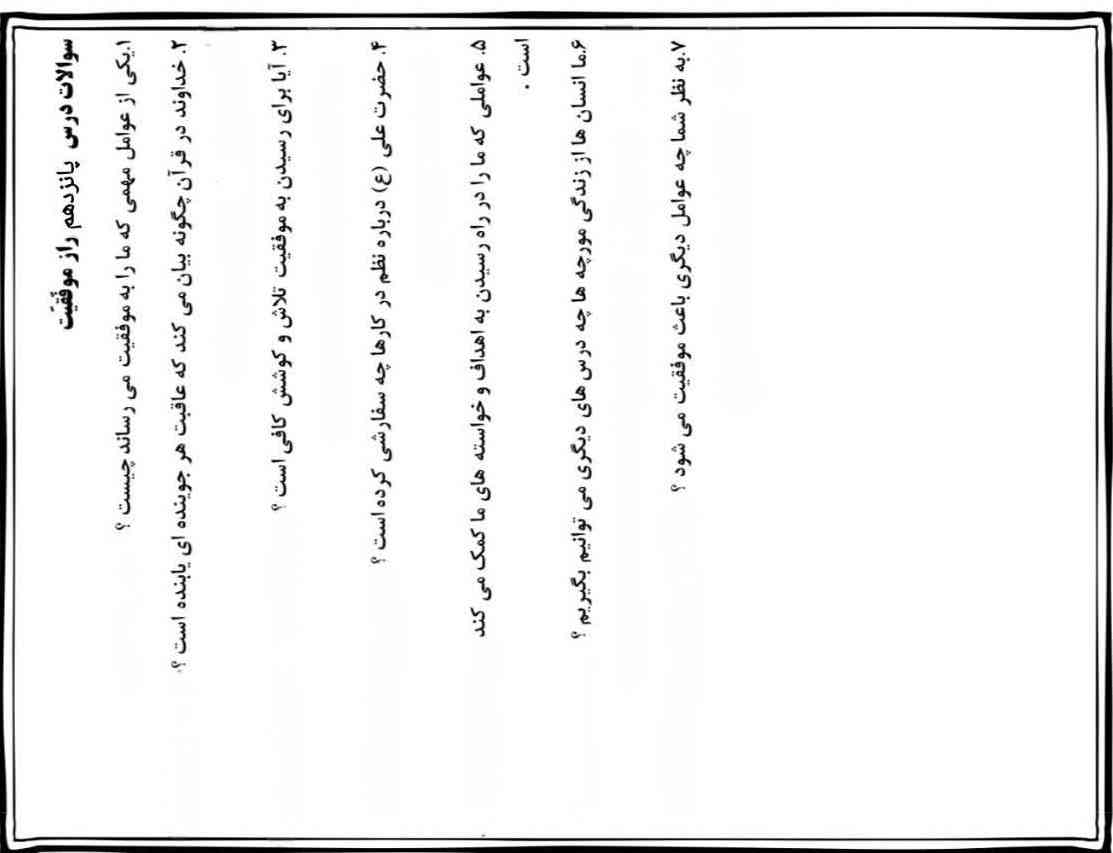 سوالات درس پانزدهم راز موفقیّت
۱.یکی از عوامل مهمی که ما را به موفقیت می رساند چیست ؟
۲. خداوند در قرآن چگونه بیان می کند که عاقبت هر جوینده ای یابنده است ؟
۳. آیا برای رسیدن به موفقیت تلاش و کوشش کافی است ؟
۴. حضرت علی (ع) درباره نظم در کارها چه سفارشی کرده است ؟
۵. عواملی که ما را در راه رسیدن به اهداف و خواسته های ما کمک می کند
است .
۶.ما انسان ها از زندگی مورچه ها چه درس های دیگری می توانیم بگیریم ؟
۷.به نظر شما چه عوامل دیگری باعث موفقیت می شود ؟